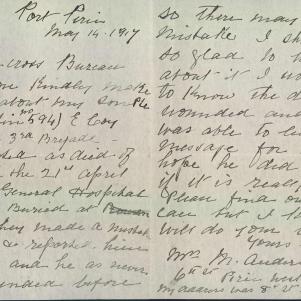 Port Pirie
May 14. 1917
cross Bureau
Kindly make
about my son Pte
594) E Coy
3rd Brigade
as died of
the 21st April
General Hospital
Buried at
they made a mistake
& reported him
and he as never
before
so there may
mistake I sh
so glad to
about it I wo
to know the d
wounded and
was able to
message for
hope he did
if it is reall
find ou
case but I
will do your
Yours
Mrs M. Ander
6th St Pirie
my address was 8th St